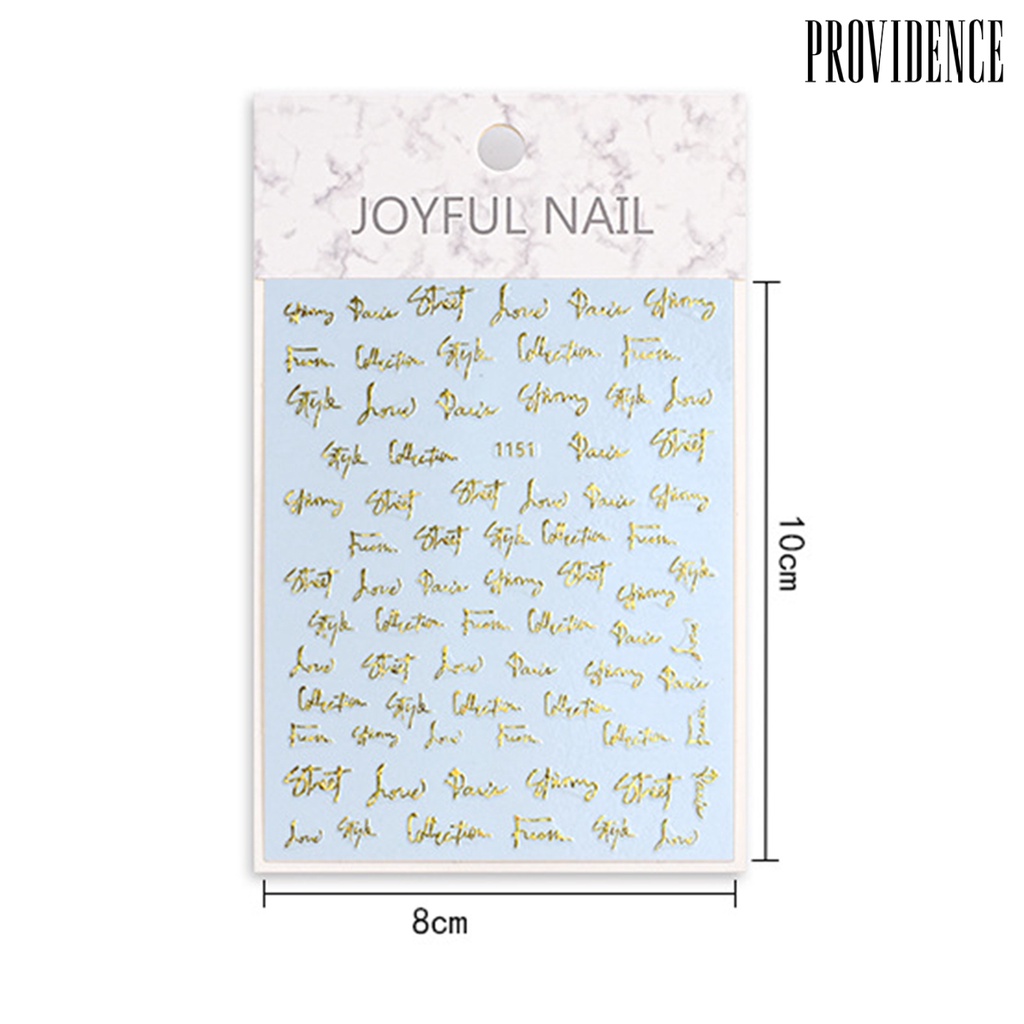 PROVIDENCE
JOYFUL NAIL
Strong Paris Street Love Paris Strong
From Collection Style Collection From
Style Love Paris Strong Style Love
Style Collection 1151 Paris Street
Strong Street Street Love Paris Strong
From Street Style Collection From
Street Love Paris Strong Street Strong Style
Style Collection From Collection Paris Love
Love Street Love Paris Strong Paris
Collection Style Collection Collection
From Strong Love From Collection From
Street Love Paris Strong Street Paris
Love Style Collection From Style Love
10cm
8cm